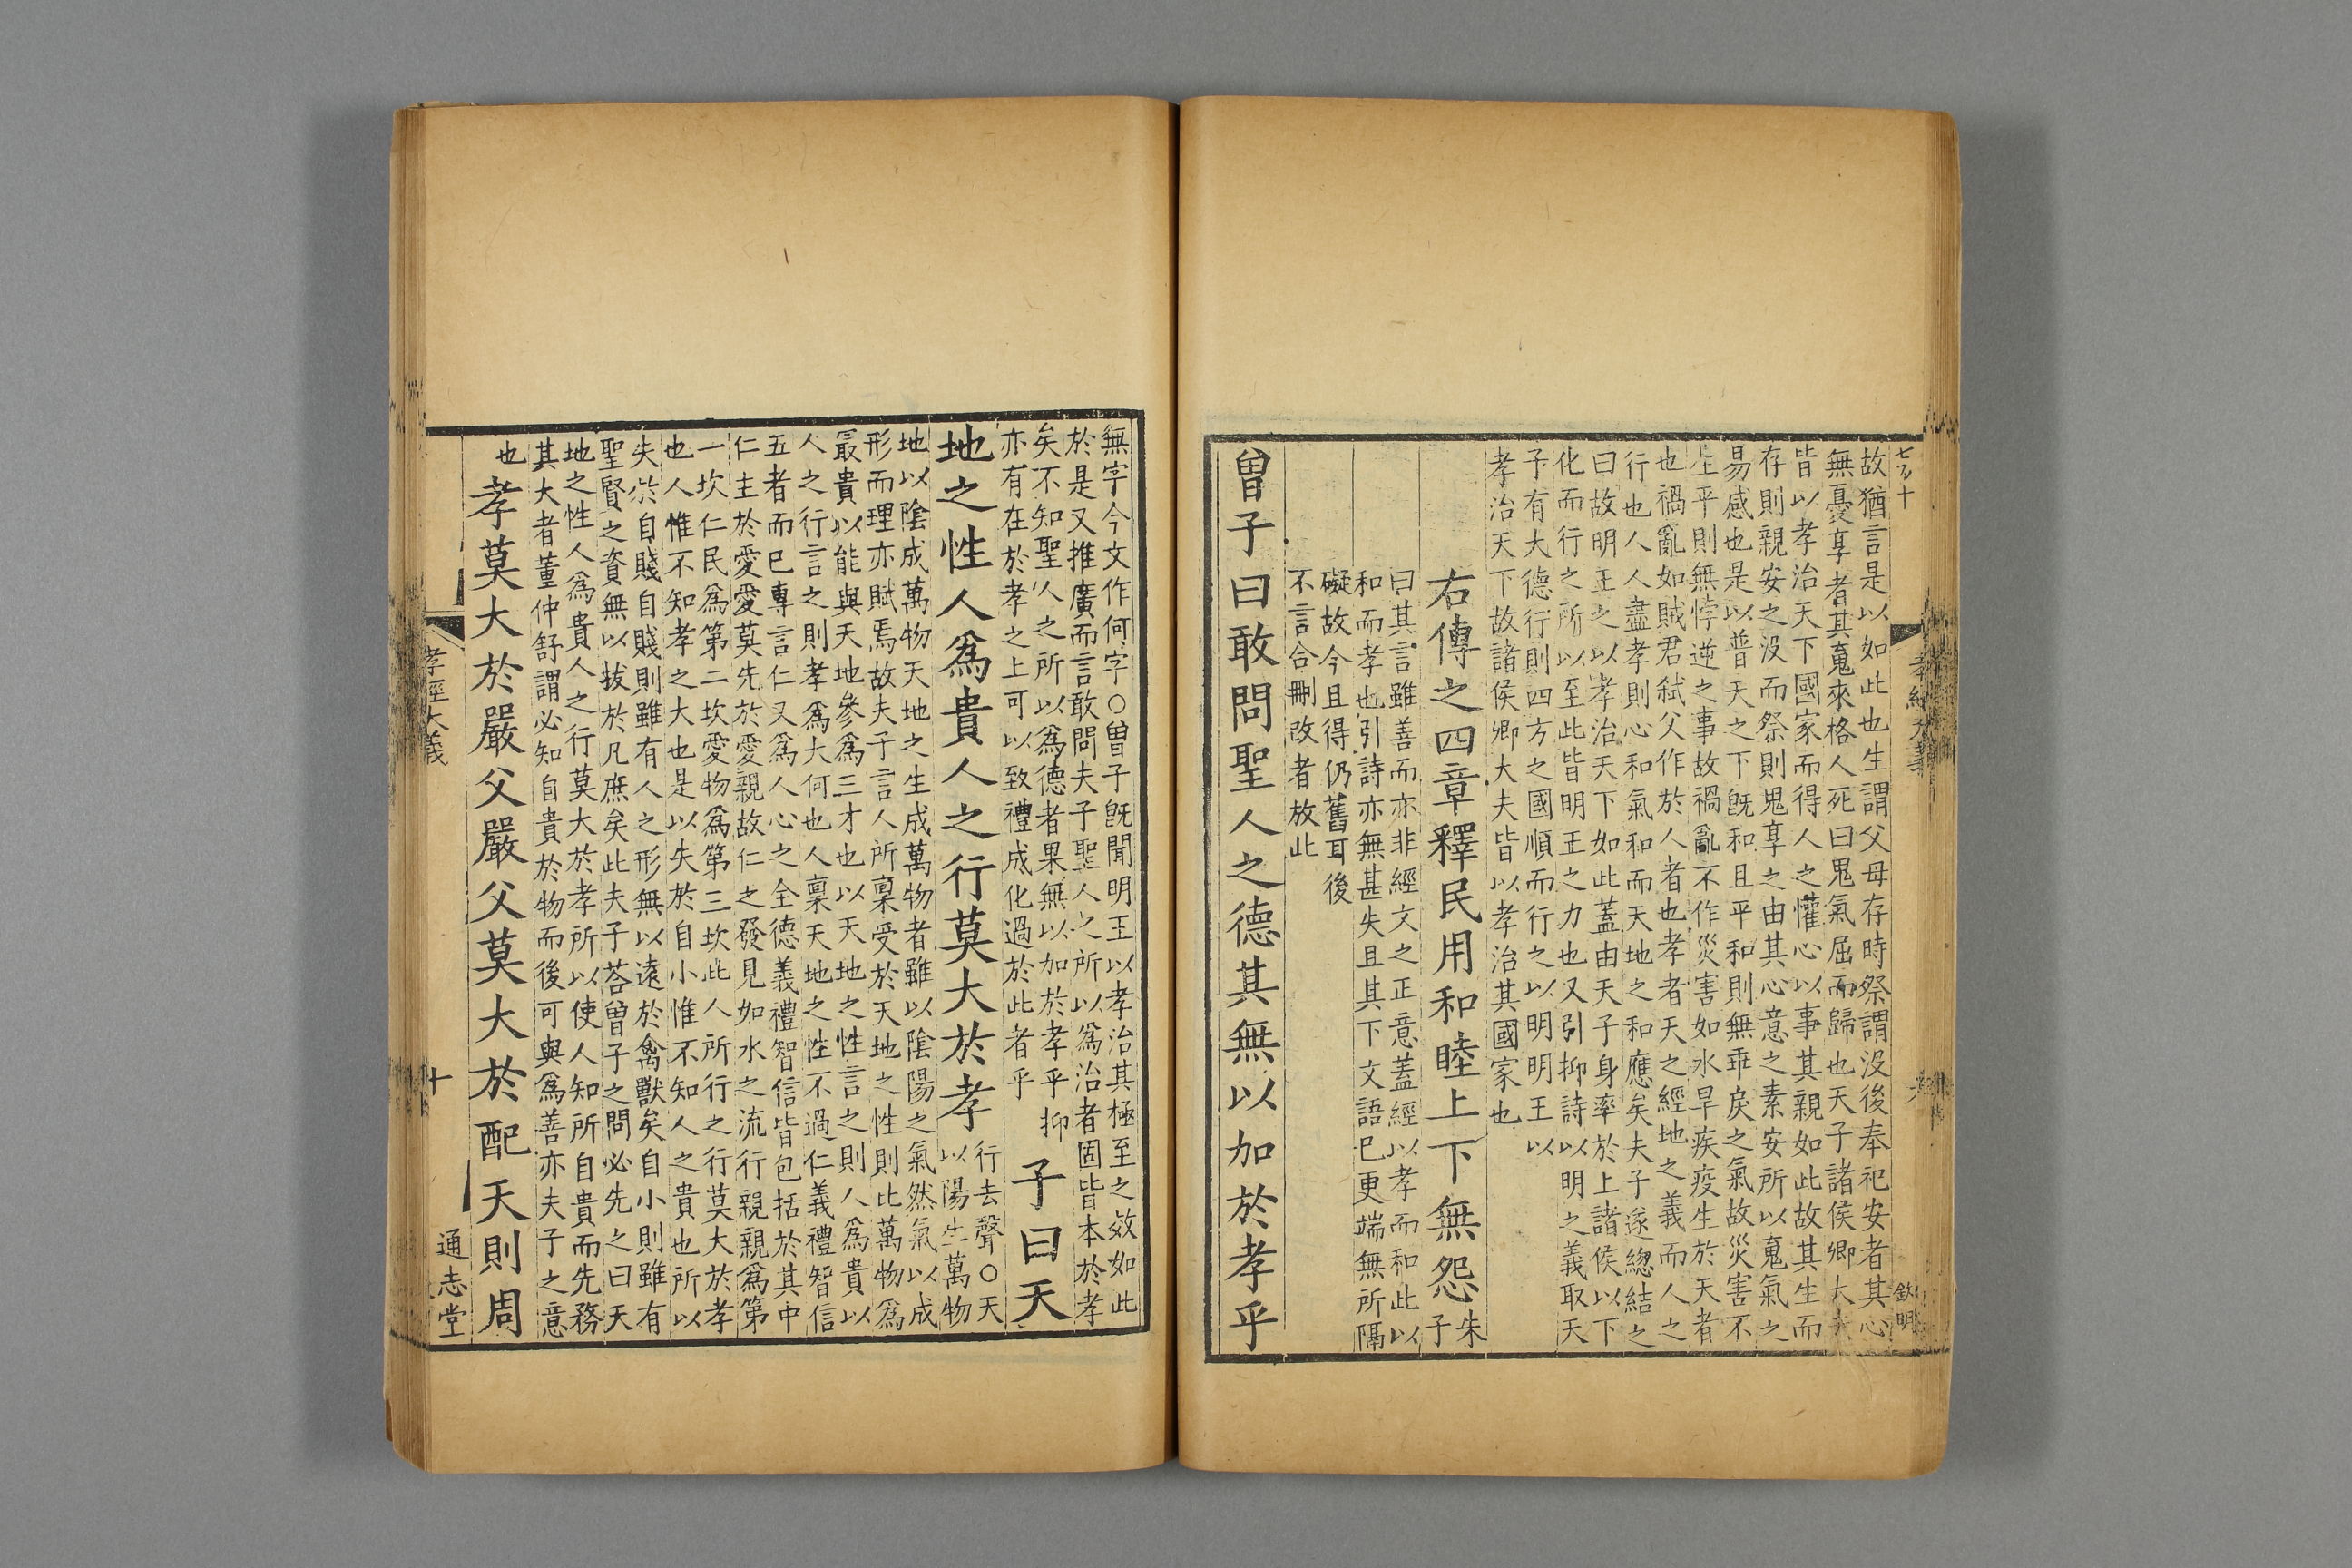 故猶言是以如此也生謂父母存時祭謂沒後奉祀安者其心
無憂享者其䰟來格人死曰鬼氣屈而歸也天子諸侯卿大夫
皆以孝治天下國家而得人之懽心以事其親如此故其生而
存則親安之沒而祭則鬼享之由其心意之素安所以䰟氣之
易感也是以普天之下旣和且平和則無乖戾之氣故災害不
生平則無悖逆之事故禍亂不作災害如水旱疾疫生於天者
也禍亂如賊君弒父作於人者也孝者天之經地之義而人之
行也人人盡孝則心和氣和而天地之和應矣夫子遂緫結之
曰故明王之以孝治天下如此蓋由天子身率於上諸侯以下
化而行之所以至此皆明王之力也又引抑詩以明之義取天
子有大德行則四方之國順而行之以明明王以
孝治天下故諸侯卿大夫皆以孝治其國家也
右傳之四章釋民用和睦上下無怨朱
子
曰其言雖善而亦非經文之正意蓋經以孝而和此以
和而孝也引詩亦無甚失且其下文語已更端無所隔
礙故今且得仍舊耳後
不言合刪改者放此
曾子曰敢問聖人之德其無以加於孝乎
欽明
無字今文作何字○曾子旣聞明王以孝治其極至之效如此
於是又推廣而言敢問夫子聖人之所以爲治者固皆本於孝
矣不知聖人之所以爲德者果無以加於孝乎抑
亦有在於孝之上可以致禮成化過於此者乎
子曰天
地之性人爲貴人之行莫大於孝行去聲○天
以陽生萬物
地以陰成萬物天地之生成萬物者雖以陰陽之氣然氣以成
形而理亦賦焉故夫子言人所稟受於天地之性則比萬物爲
最貴以能與天地參爲三才也以天地之性言之則人爲貴以
人之行言之則孝爲大何也人稟天地之性不過仁義禮智信
五者而已專言仁又爲人心之全德義禮智信皆包括於其中
仁主於愛愛莫先於愛親故仁之發見如水之流行親親爲第
一坎仁民爲第二坎愛物爲第三坎此人所行之行莫大於孝
也人惟不知孝之大也是以失於自小惟不知人之貴也所以
失於自賤自賤則雖有人之形無以遠於禽獸矣自小則雖有
聖賢之資無以拔於凡庶矣此夫子荅曾子之問必先之曰天
地之性人爲貴人之行莫大於孝所以使人知所自貴而先務
其大者董仲舒謂必知自貴於物而後可與爲善亦夫子之意
也
孝莫大於嚴父嚴父莫大於配天則周
孝經大義
十
通志堂